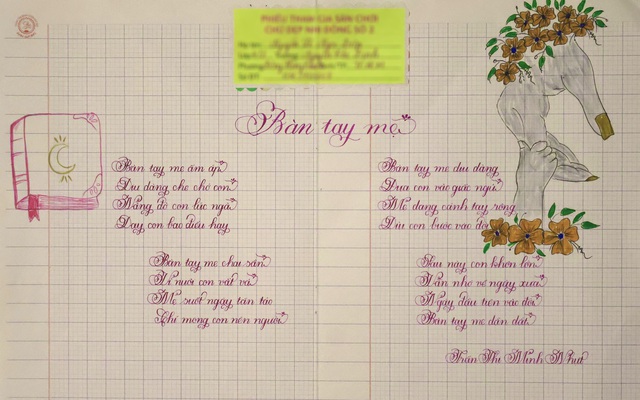 PHIẾU THAM GIA SÂN CHƠI
CHỮ ĐẸP NHI ĐỒNG SỐ 2
Bàn tay mẹ
Bàn tay mẹ ấm áp
Dịu dàng che chở con
Nâng đỡ con lúc ngã
Dạy con bao điều hay
Bàn tay mẹ chai sần
Vì nuôi con vất vả
Mẹ suốt ngày tần tảo
Chỉ mong con nên người
Bàn tay mẹ dịu dàng
Đưa con vào giấc ngủ
Mẹ dang cánh tay rộng
Dìu con bước vào đời
Sau này con khôn lớn
Vẫn nhớ về ngày xưa
Ngày đầu tiên vào đời
Bàn tay mẹ dẫn dắt
Trần Thị Minh Như